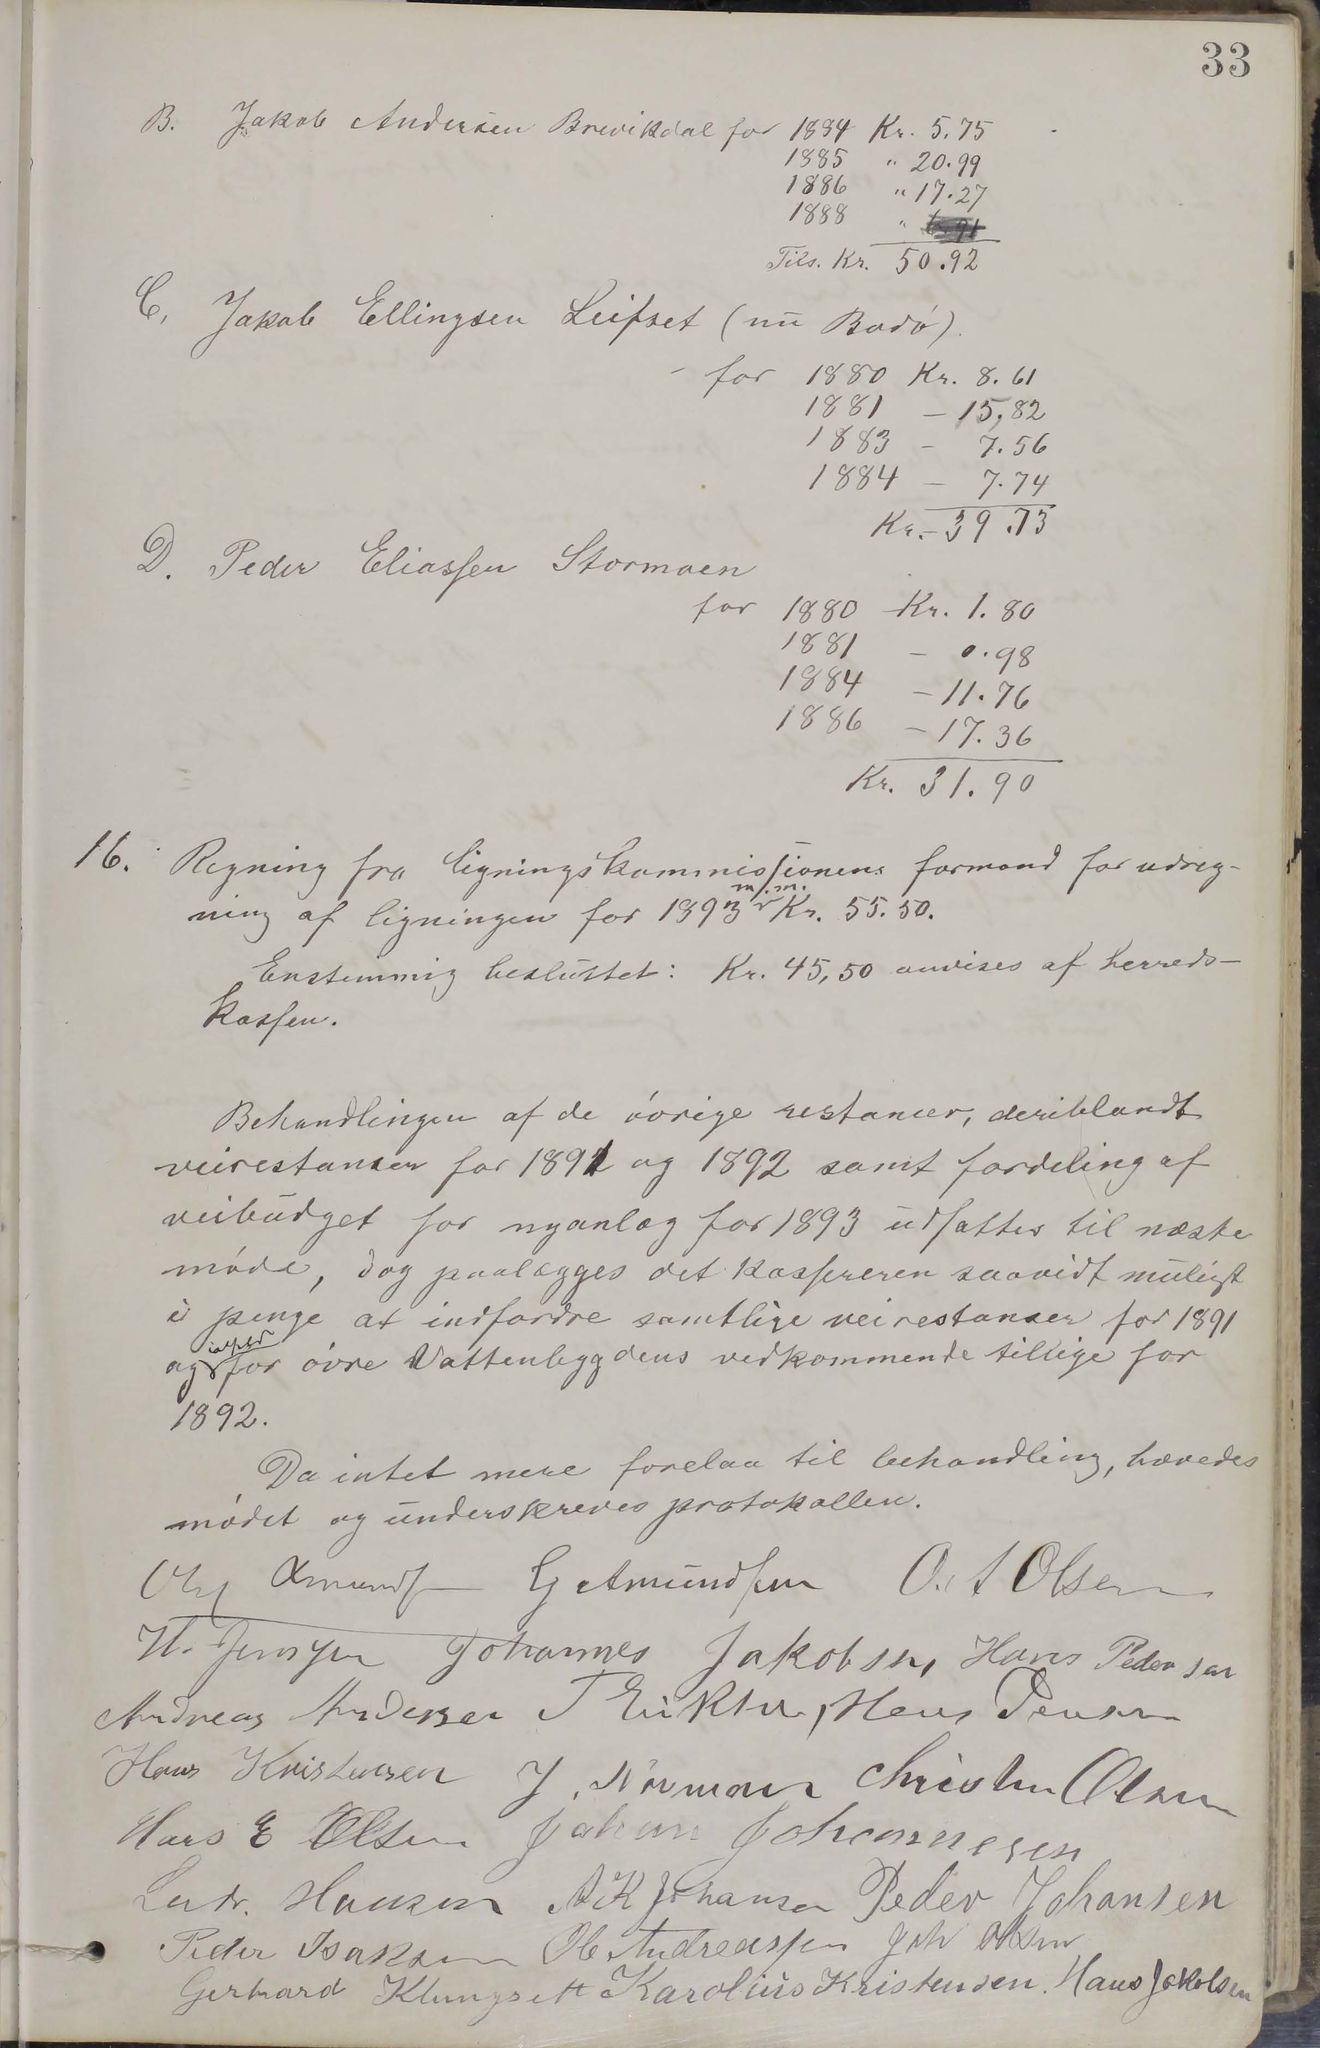 33
B. Jakob Andersen Brevikdal for 1884 Kr. 5.75
1885 " 20.99
1886 " 17.27
1888 " 6.91
Tils. Kr. 50.92
C, Jakob Ellingsen Leifset (nu Bodø).
for 1880 Kr. 8.61
1881 - 15,82
1883 - 7.56
1884 - 7.74
Kr. - 39.73
D. Peder Eliassen Stormoen
for 1880 Kr. 1.80
1881 - 0.98
1884 - 11.76
1886 - 17.36
Kr. 31.90
16. Regning fra ligningskommissionens formand for udreg-
ning af ligningen for 1893 m.m. Kr. 55.50.
Enstemmig besluttet: Kr. 45,50 anvises af herreds-
kassen.
Behandlingen af de øvrige restancer, deriblandt
veirestanser for 1891 og 1892 samt fordeling af
veibudget for nyanlæg for 1893 udsattes til næste
møde, dog paalægges det kassereren saavidt muligt
i penge at indfordre samtlige veirestanser for 1891
og for øvre Vattenbygdens vedkommende tillige for
1892.
Da intet mere forelaa til behandling, hævedes
mødet og underskreves protokollen.
Amunds G Amundsen O. A Olsen
H. Jensen Johannes Jakobsen, Hans Pedersen
Andreas Andersen Hans Jensen
Hans Kristensen J. Normann Christen Olsen
Hans E Olsen Johan Johannesen
Hansen A K Johansen Peder Johansen
Peder Isaksen Ole Andreassen Joh Olsen
Gerhard Klungset Karolius Kristensen. Hans Jakobsen